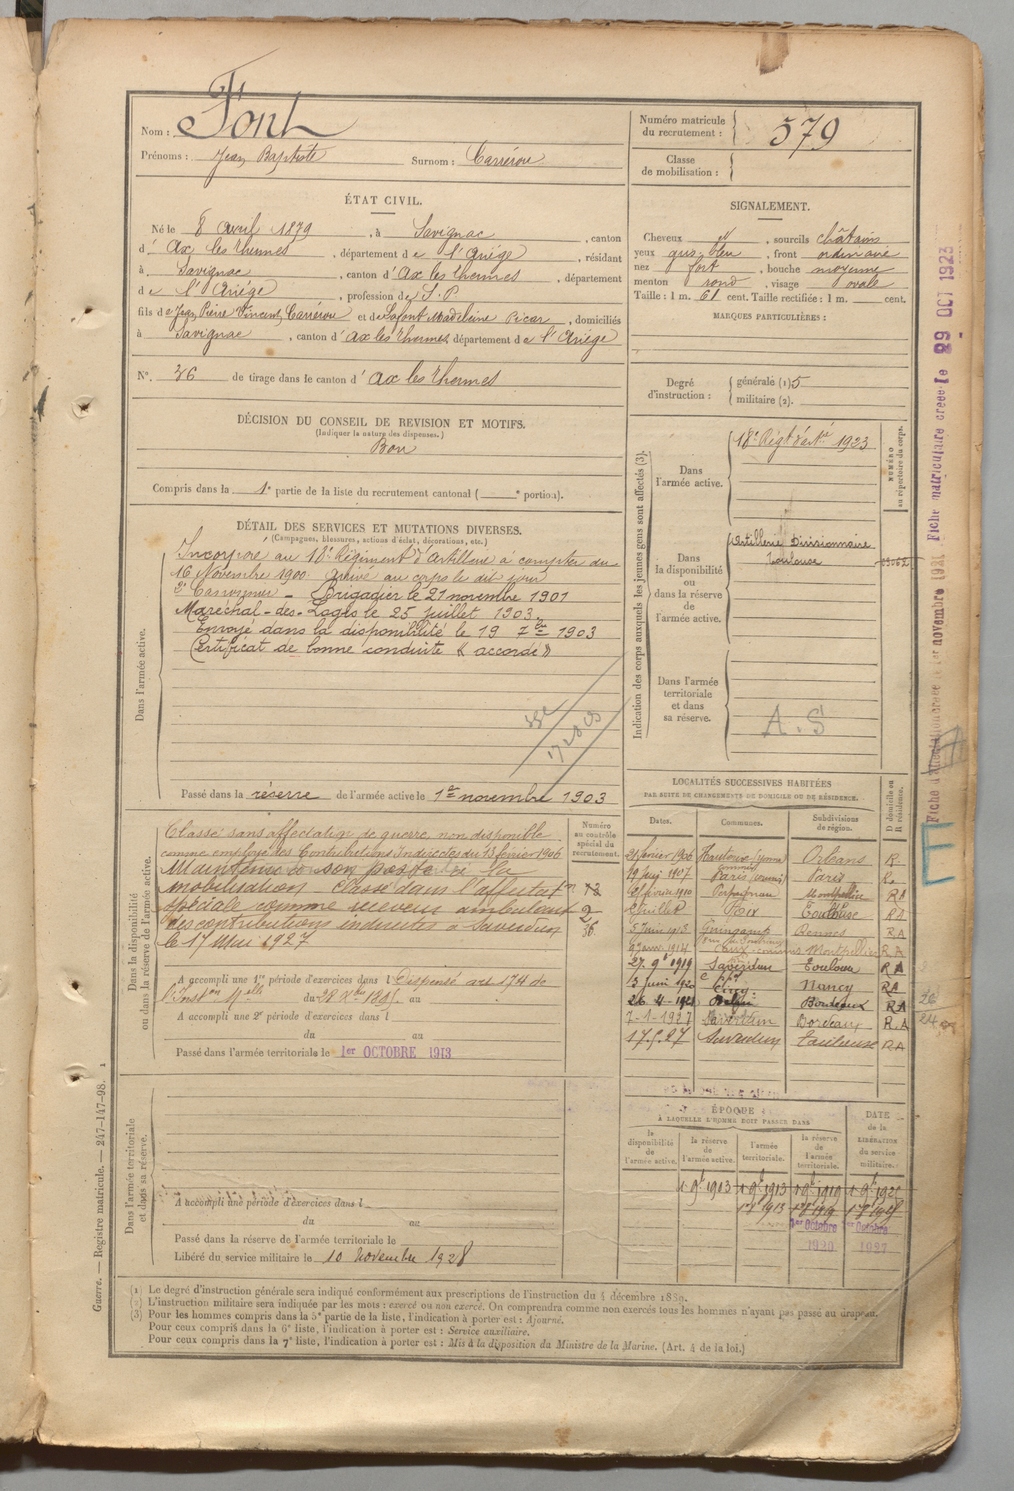 Nom : Font
Prénoms : Jean Baptiste Surnom : Carrérou
Numéro matricule du recrutement : 579
Classe de mobilisation :
ÉTAT CIVIL.
Né le 8 avril 1879, à Savignac, canton
d'Ax les thermes, département de l'Ariége, résidant
à Savignac, canton d'Ax les thermes, département
de l'Ariége, profession de S. P.
fils de Jean Pierre Vincent, Carrérou et de Lafont Madeleine Picar, domiciliés
à Savignac, canton d'ax les thermes, département de l'Ariége
N° 36 de tirage dans le canton d'ax les thermes
SIGNALEMENT.
Cheveux et, sourcils châtains
yeux gris bleu, front ordinaire
nez fort, bouche moyenne
menton rond, visage ovale
Taille : 1 m. 61 cent. Taille rectifiée : 1 m. cent.
MARQUES PARTICULIÈRES :
Degré d'instruction : générale (1) 5
militaire (2).
DÉCISION DU CONSEIL DE REVISION ET MOTIFS.
(Indiquer la nature des dispenses.)
Bon
Compris dans la 1e partie de la liste du recrutement cantonal ( e portion).
DÉTAIL DES SERVICES ET MUTATIONS DIVERSES.
(Campagnes, blessures, actions d'éclat, décorations, etc.)
Dans l'armée active.
Incorporé au 18e Régiment d'artillerie à compter du
16 Novembre 1900. Arrivé au corps le dit jour
2e Cannonier - Brigadier le 21 novembre 1901
Maréchal-des-Logis le 25 Juillet 1903
Envoyé dans la disponibilité le 19 7bre 1903
Certificat de bonne conduite « accordé »
Passé dans la réserve de l'armée active le 1er novembre 1903
Indication des corps auxquels les jeunes gens sont affectés (3).
NUMÉRO au répertoire du corps.
Dans l'armée active.
18e Régt d'artie 1923
Dans la disponibilité ou dans la réserve de l'armée active.
Artillerie Divisionnaire
Toulouse
Dans l'armée territoriale et dans sa réserve.
A. S
Dans la disponibilité ou dans la réserve de l'armée active.
Classé sans affectation de guerre, non disponible
comme employé des Contributions Indirectes du 13 février 1906
Maintenu à son poste de la
mobilisation - classé dans l'affectation
spéciale comme receveur ambulant
des contributions indirectes à Saverdun
le 17 Mai 1927
Numéro au contrôle spécial du recrutement.
A accompli une 1re période d'exercices dans l Dispensé art 174 de
l'Instion Mlle du 28 Xbre 1895 au
A accompli une 2e période d'exercices dans l
du au
Passé dans l'armée territoriale le 1er OCTOBRE 1913
LOCALITÉS SUCCESSIVES HABITÉES
PAR SUITE DE CHANGEMENTS DE DOMICILE OU DE RÉSIDENCE.
Dates. Communes. Subdivisions de région. D domicile ou R résidence.
21 février 1906 Orléans R
19 juin 1907 Paris Paris R
février 1910 Perpignan Montpellier RA
Juillet Foix Toulouse RA
5 juin 1913 Guingamp Rennes RA
1914 Montpellier RA
27. 9bre 1919 Saverdun Toulouse RA
13 juin 1920 Cirey Nancy RA
26-4-1921 Bordeaux RA
7-1-1927 Saverdun Bordeaux R.A
17.5.27 Saverdun Toulouse RA
ÉPOQUE À LAQUELLE L'HOMME DOIT PASSER DANS
DATE de la LIBÉRATION du service militaire.
la disponibilité de l'armée active. la réserve de l'armée active. l'armée territoriale. la réserve de l'armée territoriale.
1 9bre 1903 1 9bre 1913 1 9bre 1919
1er Octobre 1920 1er Octobre 1927
Dans l'armée territoriale et dans sa réserve.
A accompli une période d'exercices dans l
du au
Passé dans la réserve de l'armée territoriale le
Libéré du service militaire le 10 Novembre 1928
(1) Le degré d'instruction générale sera indiqué conformément aux prescriptions de l'Instruction du 4 décembre 1889.
(2) L'instruction militaire sera indiquée par les mots : exercé ou non exercé. On comprendra comme non exercés tous les hommes n'ayant pas passé au drapeau.
(3) Pour les hommes compris dans la 5e partie de la liste, l'indication à porter est : Ajourné.
Pour ceux compris dans la 6e liste, l'indication à porter est : Service auxiliaire.
Pour ceux compris dans la 7e liste, l'indication à porter est : Mis à la disposition du Ministre de la Marine. (Art. 4 de la loi.)
Guerre. — Registre matricule. — 247-147-98. 1
Fiche matriculaire créée le 29 OCT 1923